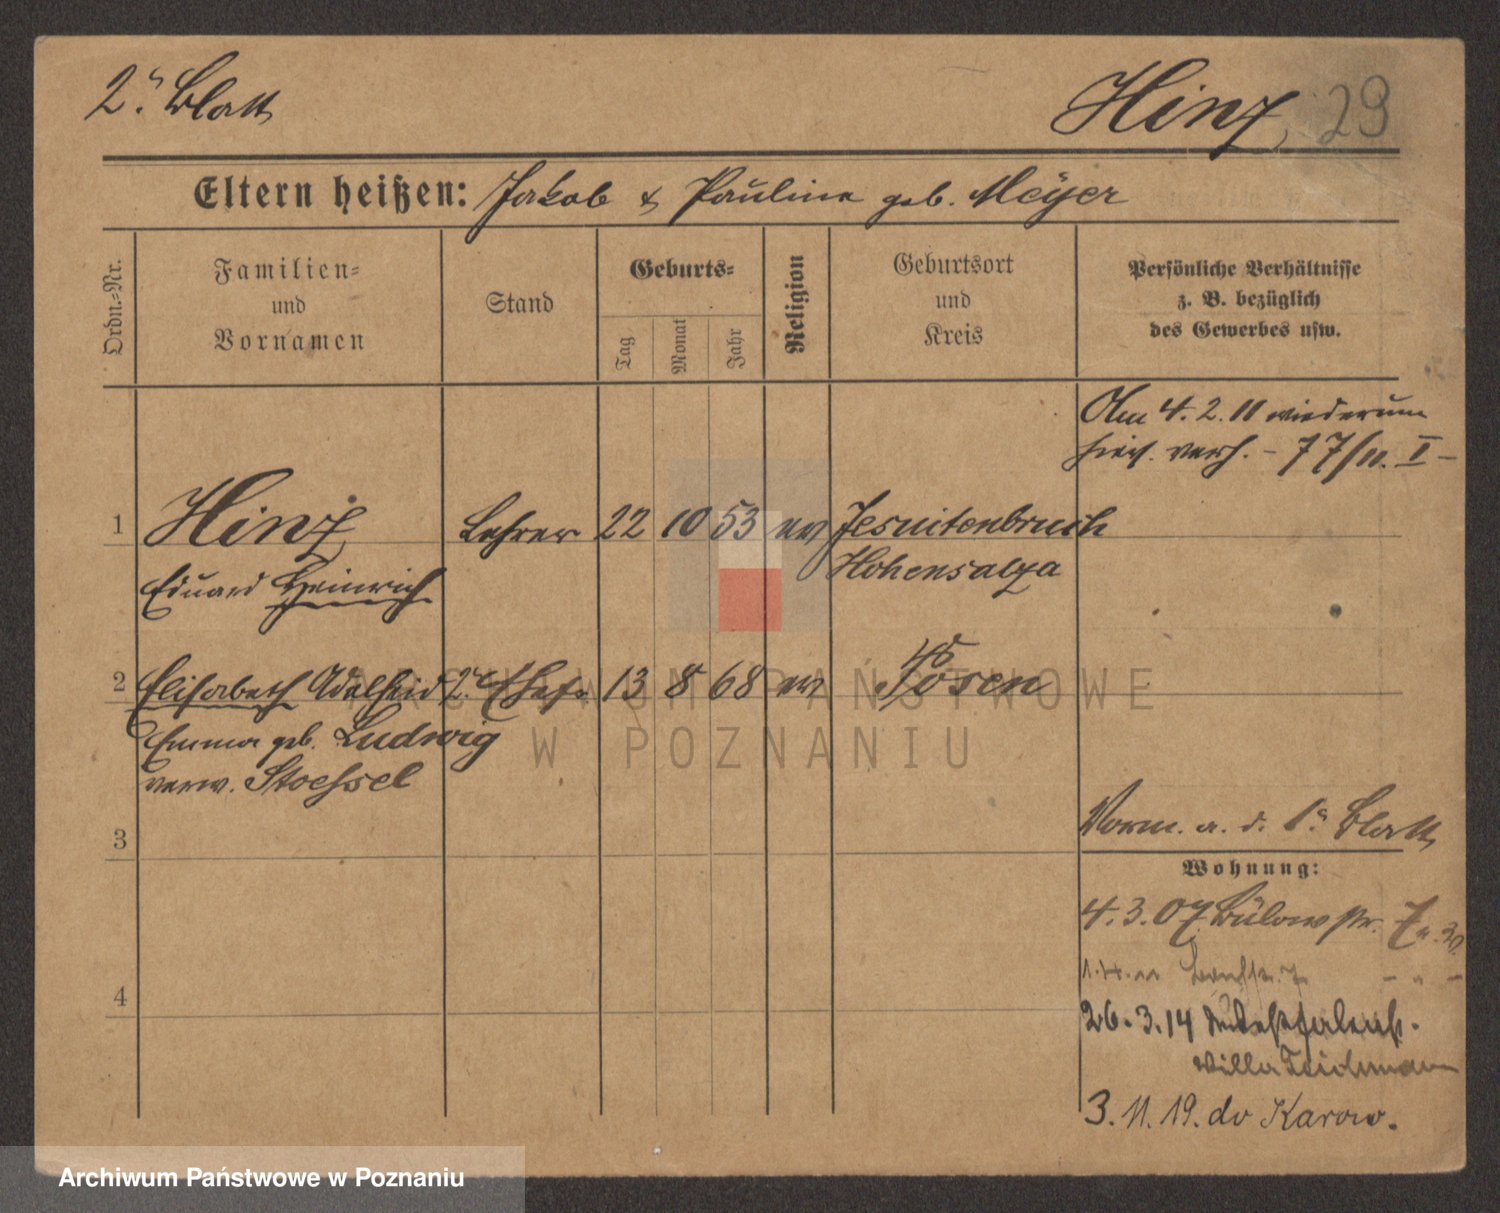 2s Blatt
Hinz
29
Eltern heißen: Jakob & Pauline geb. Meyer
Ordn.-Nr.
Familien-
und
Vornamen
Stand
Geburts-
Tag
Monat
Jahr
Religion
Geburtsort
und
Kreis
Persönliche Verhältnisse
z. B. bezüglich
des Gewerbes usw.
Am 4.2.11 wiederum
verh. - 77/11. II -
1 Hinz Lehrer 22 10 53 ev Jesuitenbruch
Eduard Heinrich Hohensalza
2 Elisabeth Adelheid 2te Ehefr. 13 8 68 ev Posen
Emma geb. Ludwig
verw. Stoessel
3
Vorm. a. d. 1s Blatt
Wohnung:
4.3.07 Bülowstr. 7
1.4.11
4
26.3.14
Willa Teichmann
3.11.19. do Karow.
ARCHIWUM PAŃSTWOWE
W POZNANIU
Archiwum Państwowe w Poznaniu